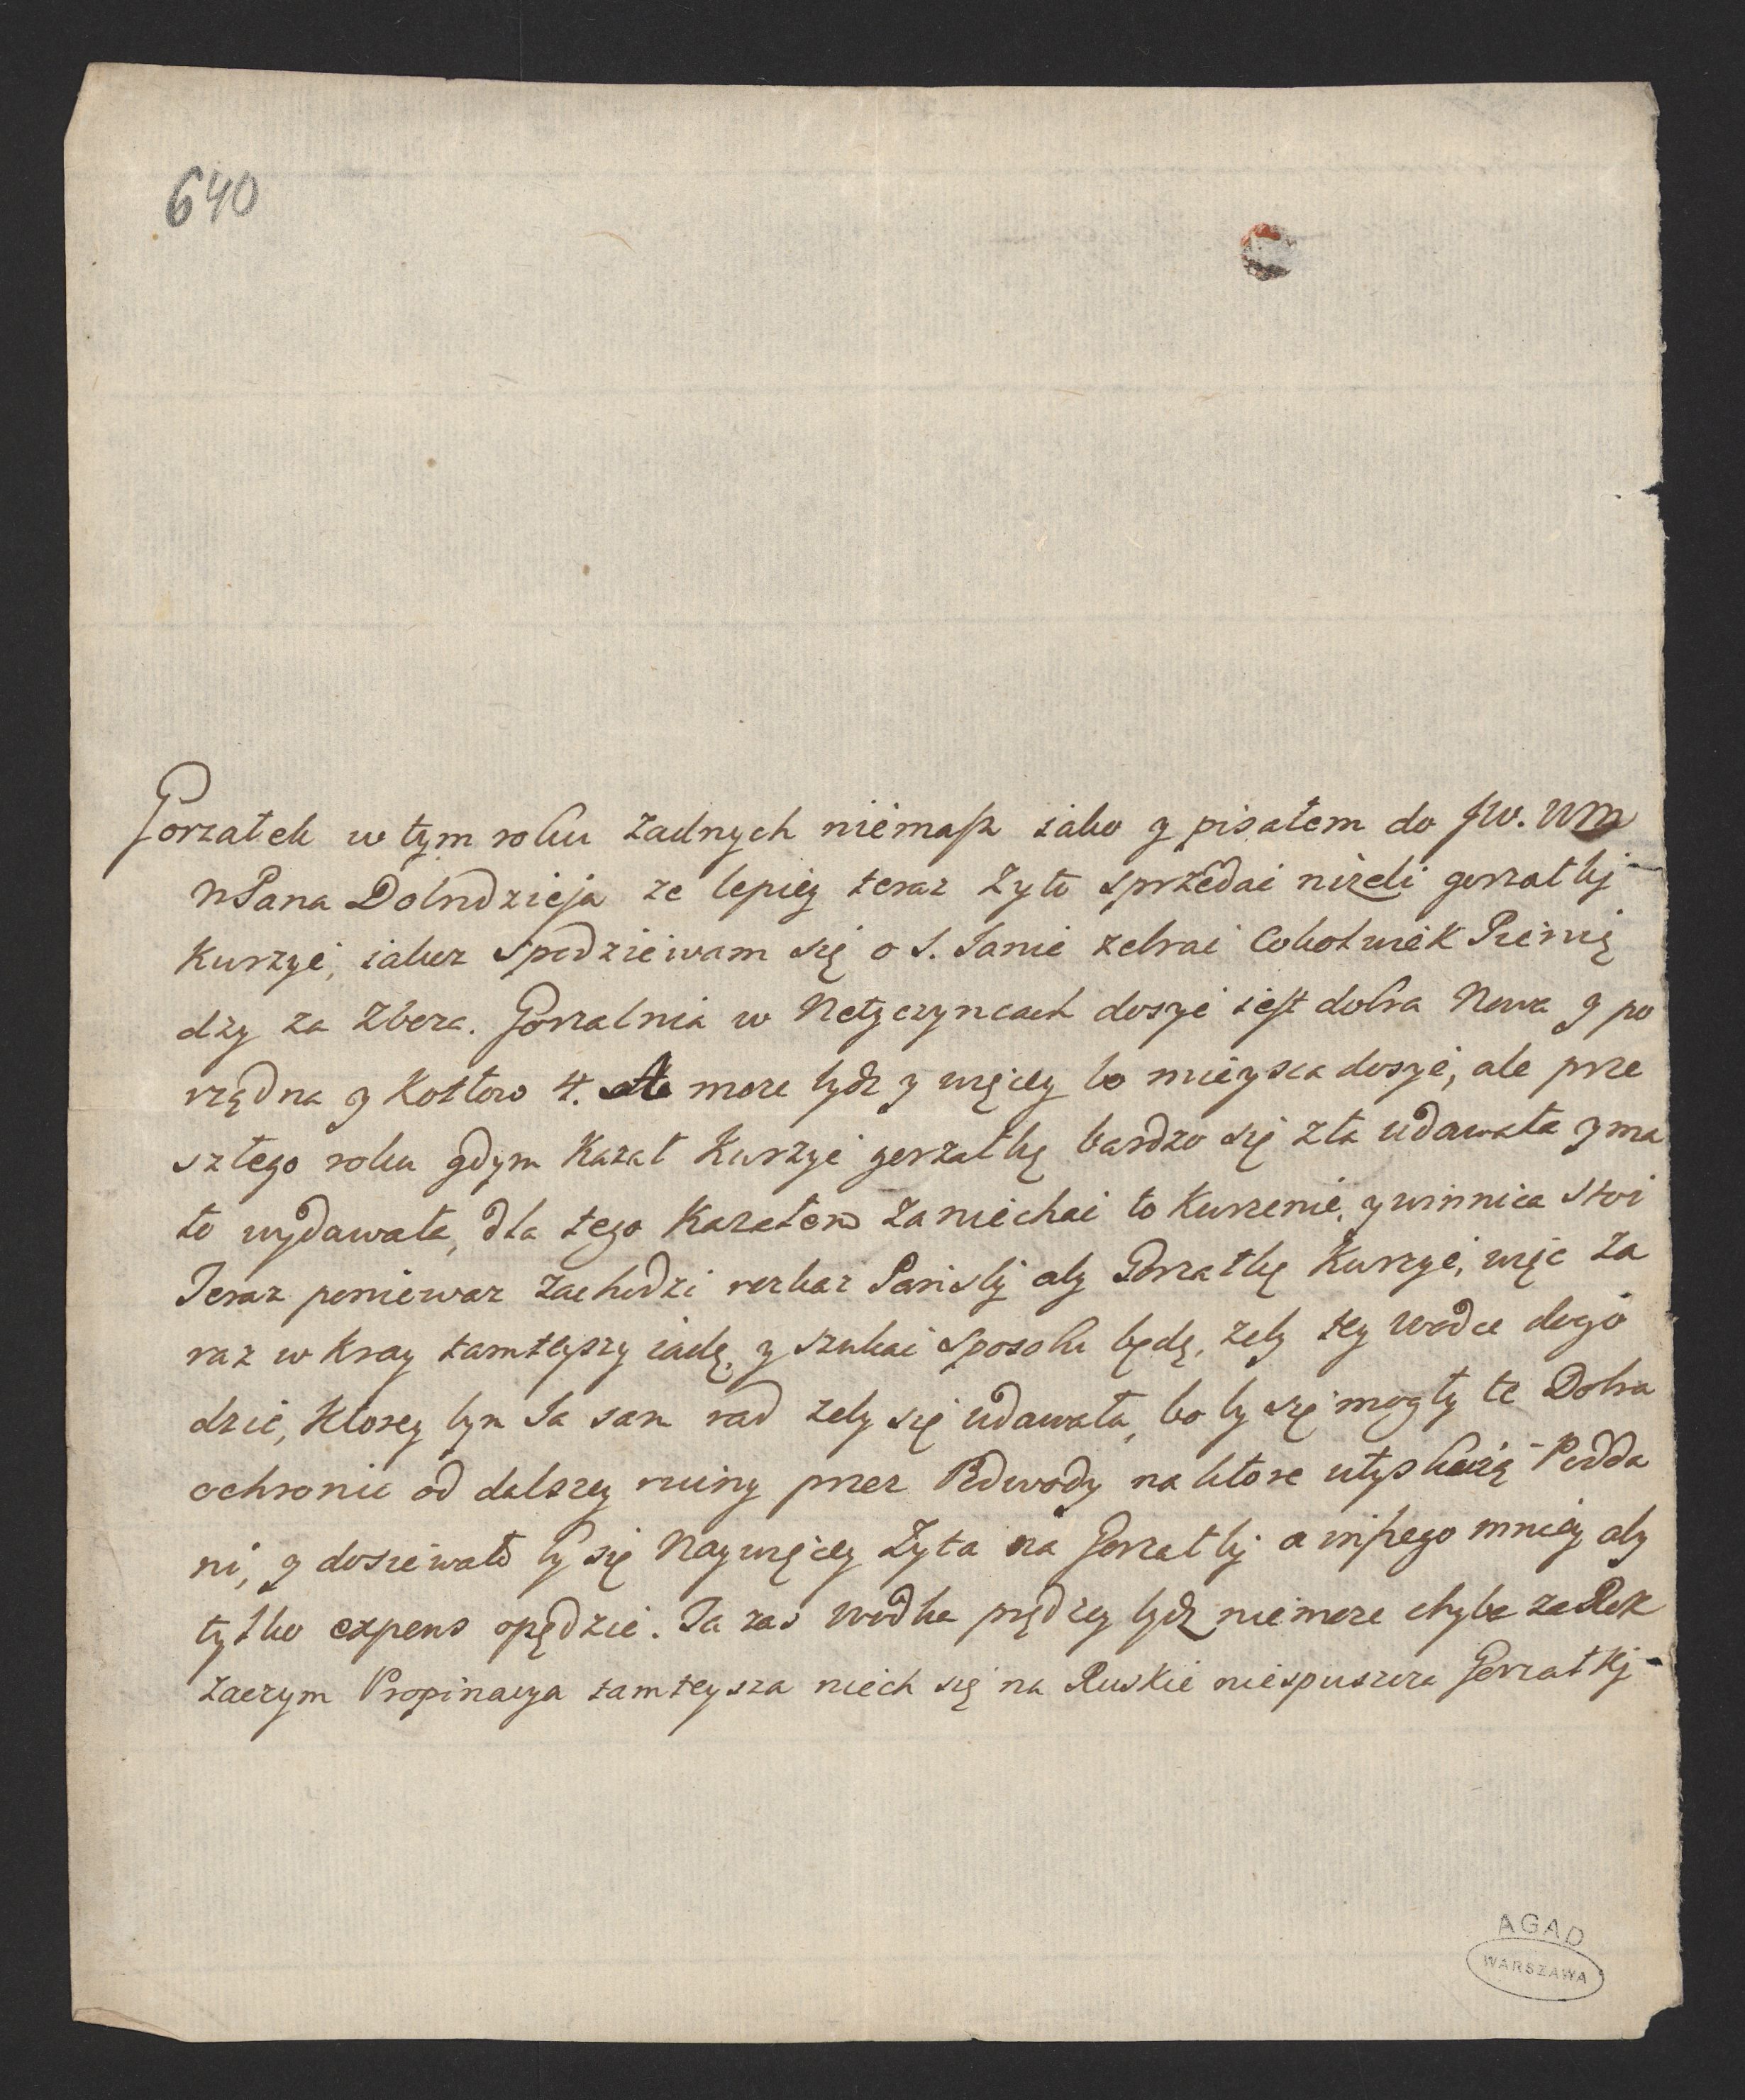 640
Gorzałek w tym roku żadnych niémasz iako y pisałem do JW. WM
WPana Dobrodzieja ze lepiey teraz Zyto sprzedai niżeli gorzałky
Kurzyć, iakoz spodziéwam się o S. Janie zebrai Cokolwiek Piénię
dzy za Zboza. Gorzalnia w Netyczyncach dosyć iest dobra Nowa y po
rządna y Kotłow 4. może bydz y więcey bo mieysca dosyć, ale prze
szłego roku gdym Kazał Kurzyć gorzałkę bardzo się zła udawała y ma
ło wydawała, dla tego Kazałem Zaniechai to Kurzenie, y winnica stoi
Teraz poniewaz Zachodzi rozkaz Pański aby Gorzałkę Kurzyć, więc Za
raz w Kray tamteyszy iadę, y szukai sposobu będę, zeby tey wodce dogo
dzić, Ktorey bym Ja sam rad zeby się udawała, bo by się mogły te Dobra
ochronić od dalszey ruiny przez Podwody na ktore utyskuią Podda
ni, y dosiewało by się Naywięcey Zyta na Gorzałky a inszego mniey aby
tylko expens opędzić. Ta zas wodka prędzey bydz niemoze chyba za Rok
Zaczym Propinacya tamteysza niech się na Ruskie niespuszcza Gorzałky
AGAD
WARSZAWA